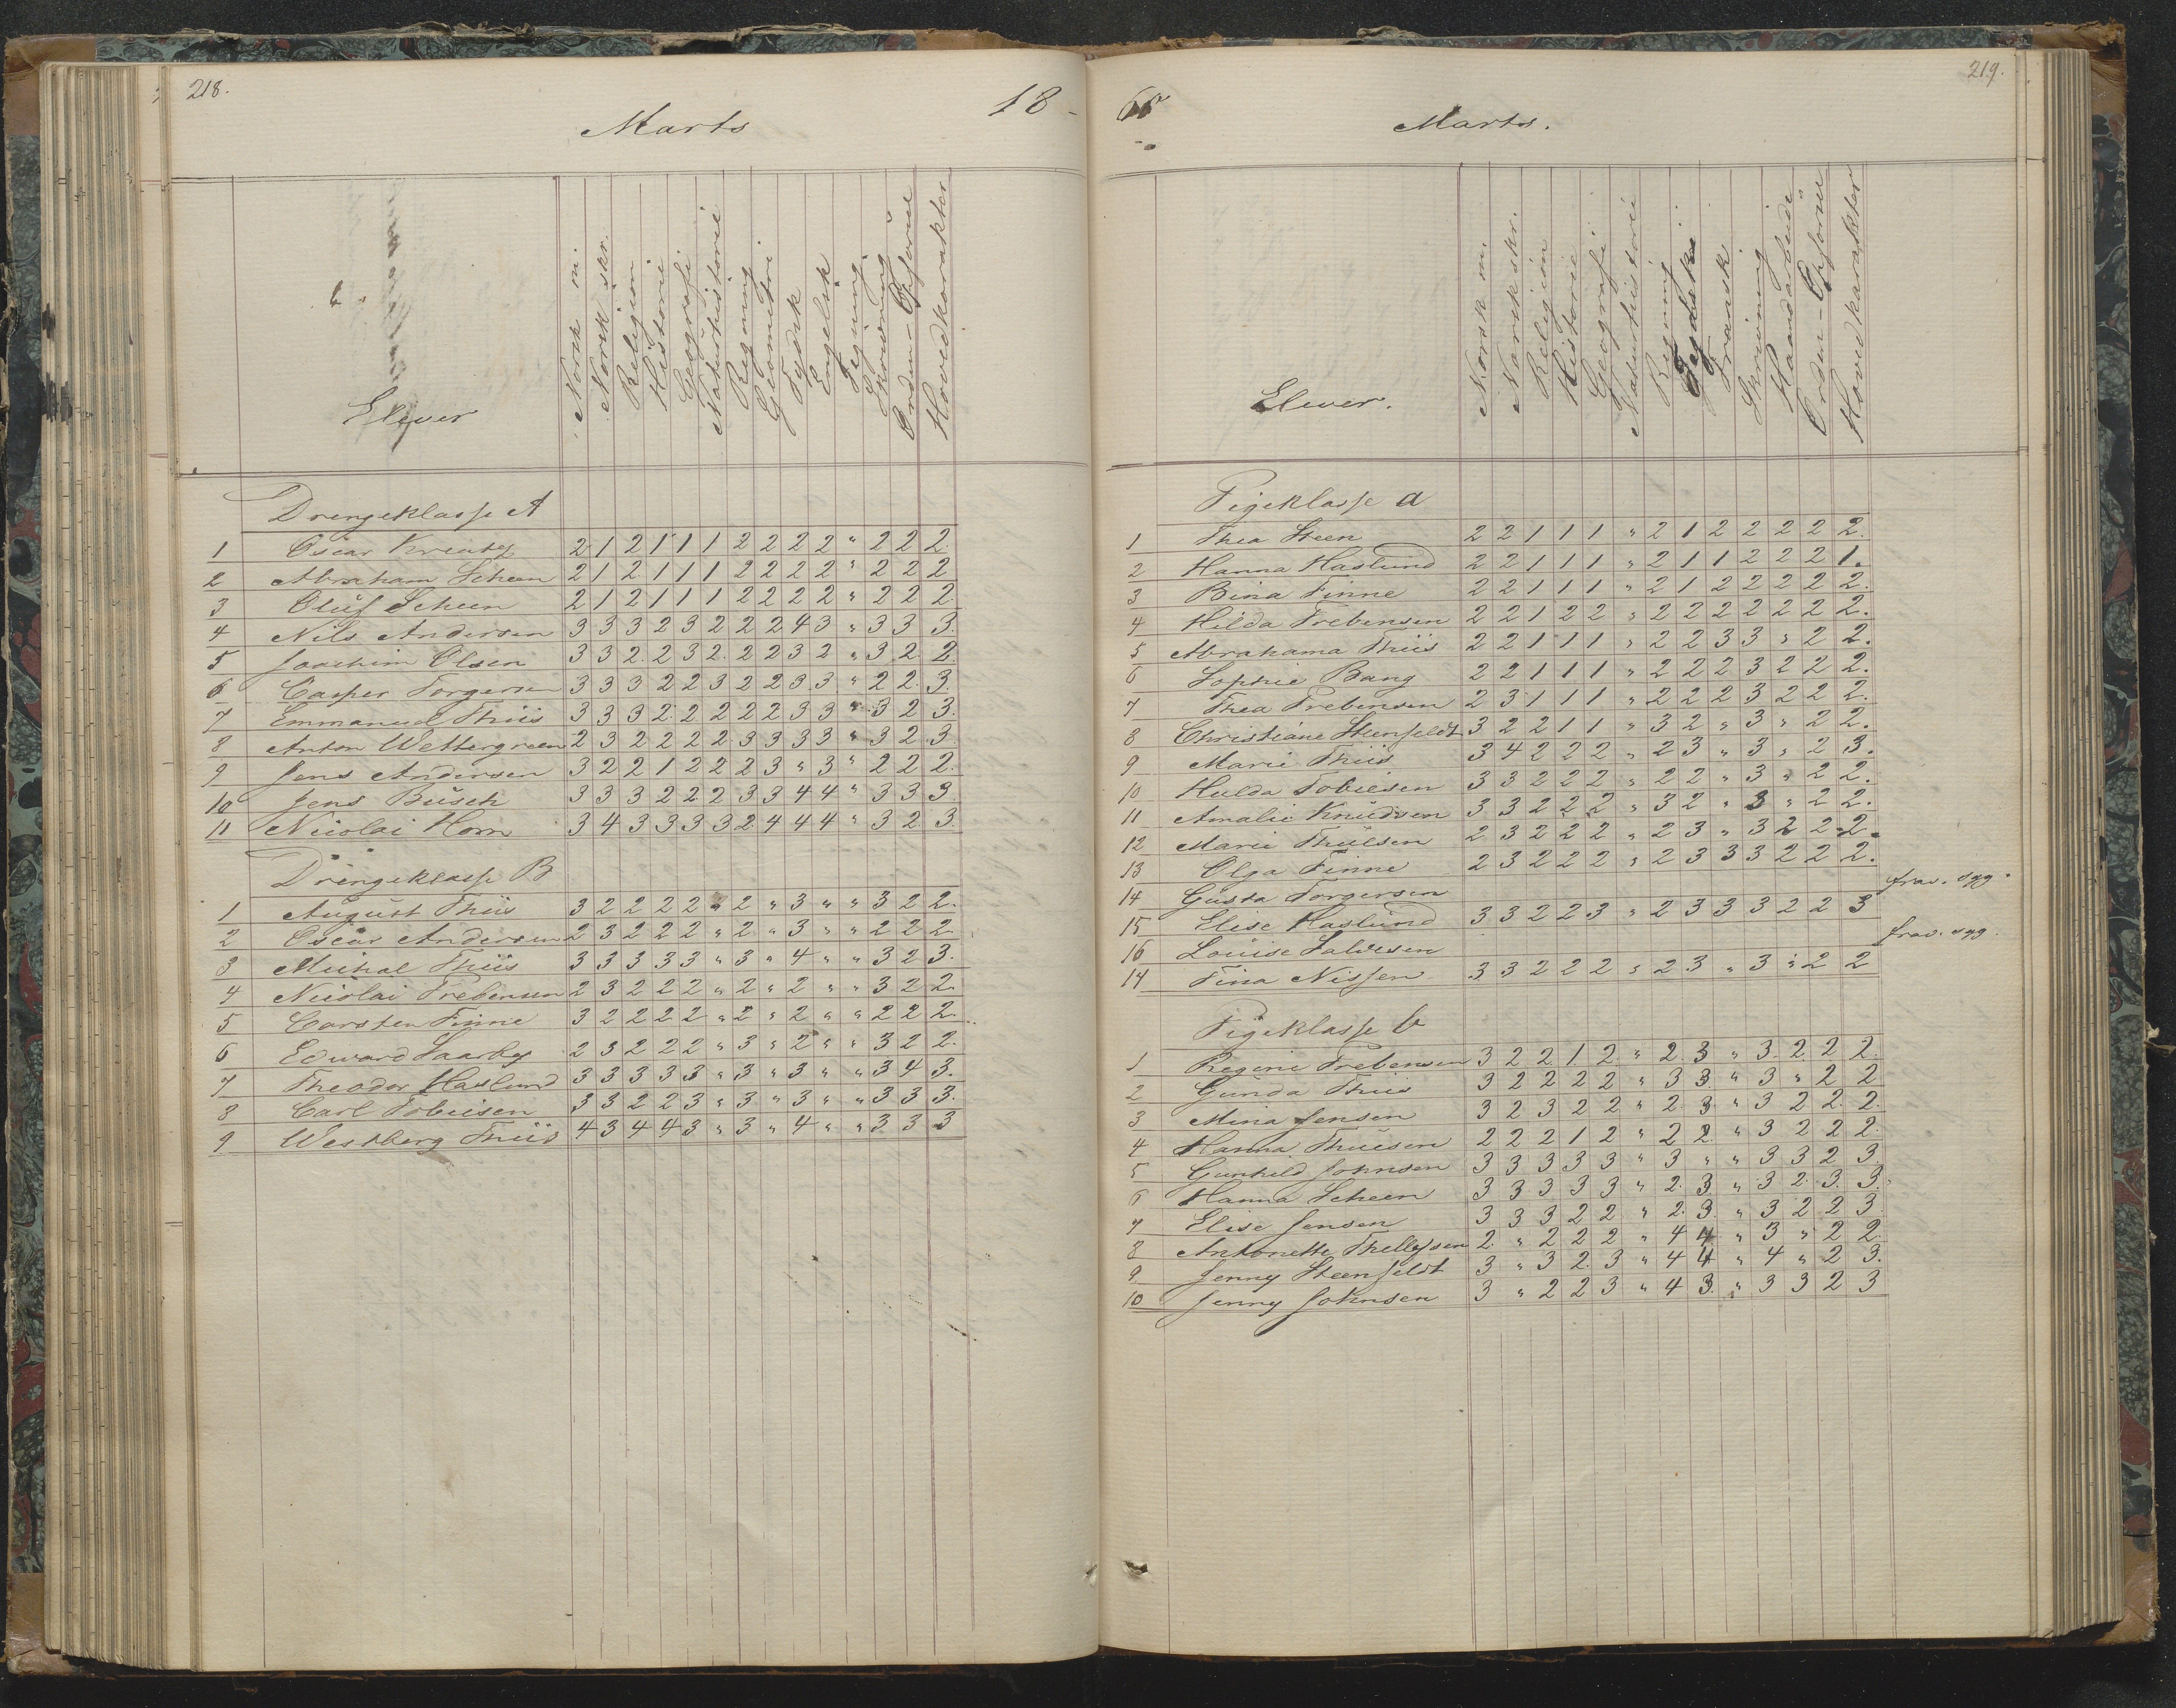 218.
Marts
18-
Elever
Norsk m.
Norsk skr.
Religion
Historie
Geografi
Naturhistorie
Regning
Geometri
Tydsk
Engelsk
Tegning
Skrivning
Orden-Opførsel
Hovedkarakter
Drengeklasse A
1 Oscar 2 1 2 1 1 1 2 2 2 2 " 2 2 2
2 Abraham Scheen 2 1 2 1 1 1 2 2 2 2 " 2 2 2
3 Oluf Scheen 2 1 2 1 1 1 2 2 2 2 " 2 2 2.
4 Nils Andersen 3 3 3 2 3 2 2 2 4 3 " 3 3 3.
5 Joachim Olsen 3 3 2 2 3 2 2 2 3 2 " 3 2 2
6 Casper Torgersen 3 3 3 2 2 3 2 2 3 3 " 2 2 3.
7 Emmanuel Thiis 3 3 3 2 2 2 2 2 3 3 " 3 2 3.
8 Anton Wettergreen 2 3 2 2 2 2 3 3 3 3 " 3 2 3
9 Jens Andersen 3 2 2 1 2 2 2 3 " 3 " 2 2 2.
10 Jens Busch 3 3 3 2 2 2 3 3 4 4 " 3 3 3
11 Nicolai Horn 3 4 3 3 3 3 2 4 4 4 " 3 2 3
Drengeklasse B
1 August Thiis 3 2 2 2 2 " 2 " 3 " " 3 2 2.
2 Oscar Andersen 2 3 2 2 2 " 2 " 3 " " 2 2 2
3 Michal Thiis 3 3 3 3 3 " 3 " 4 " " 3 2 3.
4 Nicolai Trebensen 2 3 2 2 2 " 2 " 2 " " 3 2 2.
5 Carsten Finne 3 2 2 2 2 " 2 " 2 " " 2 2 2.
6 Edward 2 3 2 2 2 " 3 " 2 " " 3 2 2.
7 Theodor Haslund 3 3 3 3 3 " 3 " 3 " " 3 4 3.
8 Carl Tobiesen 3 3 2 2 3 " 3 " 3 " " 3 3 3.
9 Westberg Thiis 4 3 4 4 3 " 3 " 4 " " 3 3 3
219.
Marts.
Elever.
Norsk m.
Norsk skr.
Religion
Historie
Geografi
Naturhistorie
Regning
Fransk
Skrivning
Haandarbeide
Orden-Opførsel
Hovedkarakter
Pigeklasse a
1 Thea Steen 2 2 1 1 1 " 2 1 2 2 2 2 2.
2 Hanna Haslund 2 2 1 1 1 " 2 1 1 2 2 2 1.
3 Bina Finne 2 2 1 1 1 " 2 1 2 2 2 2 2.
4 Hilda Trebensen 2 2 1 2 2 " 2 2 2 2 2 2 2.
5 Abrahama Thiis 2 2 1 1 1 " 2 2 3 3 " 2 2.
6 Sophie Bang 2 2 1 1 1 " 2 2 2 3 2 2 2.
7 Thea Trebensen 2 3 1 1 1 " 2 2 2 3 2 2 2.
8 Christiane Steenfeldt 3 2 2 1 1 " 3 2 " 3 " 2 2.
9 Marie Thiis 3 4 2 2 2 " 2 3 " 3 " 2 3.
10 Hulda Tobiesen 3 3 2 2 2 " 2 2 " 3 " 2 2.
11 Amalie Knudsen 3 3 2 2 2 " 3 2 " 3 " 2 2.
12 Marie Thulsen 2 3 2 2 2 " 2 3 " 3 2 2 2.
13 Olga Finne 2 3 2 2 2 " 2 3 3 3 2 2 2.
14 Gusta Torgersen frav. syg.
15 Elise Haslund 3 3 2 2 3 " 2 3 3 3 2 2 3
16 Louise Salvesen frav. syg.
14 Tina Nissen 3 3 2 2 2 " 2 3 " 3 " 2 2
Pigeklasse b
1 Regine Trebensen 3 2 2 1 2 " 2 3 " 3 2 2 2.
2 Gunda Thiis 3 2 2 2 2 " 3 3 " 3 " 2 2
3 Mina Jensen 3 2 3 2 2 " 2 3 " 3 2 2 2.
4 Hanna Thuesen 2 2 2 1 2 " 2 2 " 3 2 2 2
5 Gunhild Johnsen 3 3 3 3 3 " 3 " " 3 3 2 3.
6 Hanna Scheen 3 3 3 3 3 " 2 3 " 3 2 3 3.
7 Elise Jensen 3 3 3 2 2 " 2 3 " 3 2 2 3
8 Antonette Thellefsen 2 " 2 2 2 " 4 4 " 3 " 2 2.
9 Jenny Steenfeldt 3 " 3 2 3 " 4 4 " 4 " 2 3.
10 Jenny Johnsen 3 " 2 2 3 " 4 3 " 3 3 2 3